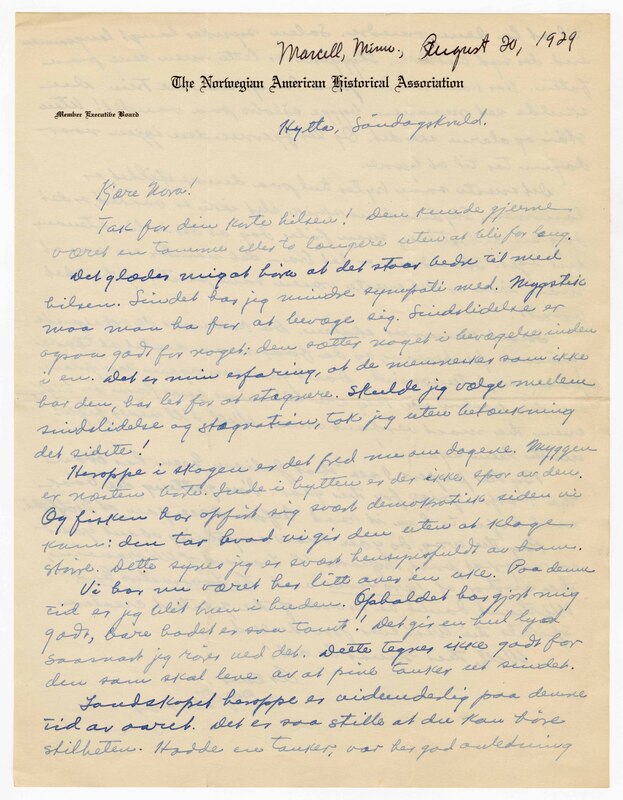 Marcell, Minn., August 20, 1929
The Norwegian American Historical Association
Member Executive Board
Hytta, Søndagskveld.
Kjære Nora!
Tak for din korte hilsen! Den kunde gjerne
været en tomme eller to længere uten at bli for lang.
Det glæder mig at høre at det staar bedre til med
helsen. Sindet har jeg mindre sympati med. Mygstik
maa man ha for at bevæge sig. Sindslidelse er
ogsaa godt for noget: den sætter noget i bevægelse inden
i en. Det er min erfaring, at de mennesker som ikke
har den, har let for at stagnere. Skulde jeg vælge mellem
sindslidelse og stagnation, tok jeg uten betænkning
det sidste!
Heroppe i skogen er det fred nu om dagene. Myggen
er næsten borte. Inde i hytten er der ikke spor av den.
Og fisken har opført sig svært demokratisk siden vi
kom: den tar hvad vi gir den uten at klage
større. Dette synes jeg er svært hensynsfuldt av ham.
Vi har nu været her litt over én uke. Paa denne
tid er jeg blit brun i huden. Opholdet har gjort mig
godt, bare hodet er saa tomt! Det gir en hul lyd
saasnart jeg rører ved det. Dette tegner ikke godt for
den som skal leve av at pine tanker ut sindet.
Landskapet heroppe er vidunderlig paa denne
tid av aaret. Det er saa stille at du kan høre
stilheten. Hadde en tanker, var her god anledning